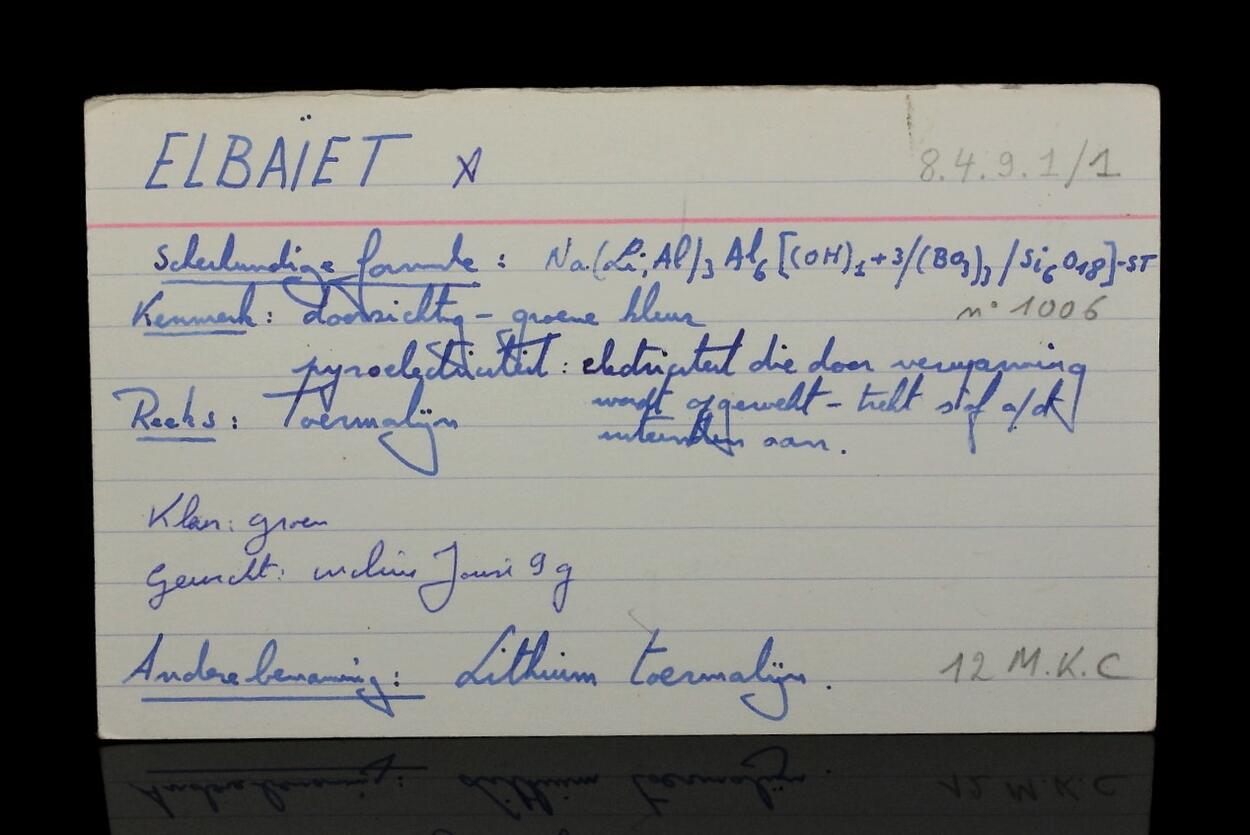 ELBAÏET X 8.4.9.1/1
Scheikundige formule : Na(Li,Al)3 Al6 [(OH)1+3/(BO3)3/Si6O18]-ST
Kenmerk : doorzichtig - groene kleur n° 1006
pyroelectriciteit : electriciteit die door verwarming
wordt opgewekt - trekt stof a/d
Reeks : Toermalijn
uiteinden aan.
Kleur: groen
Gewicht: 9 g
Andere benaming : Lithium toermalijn. 12 M.K.C